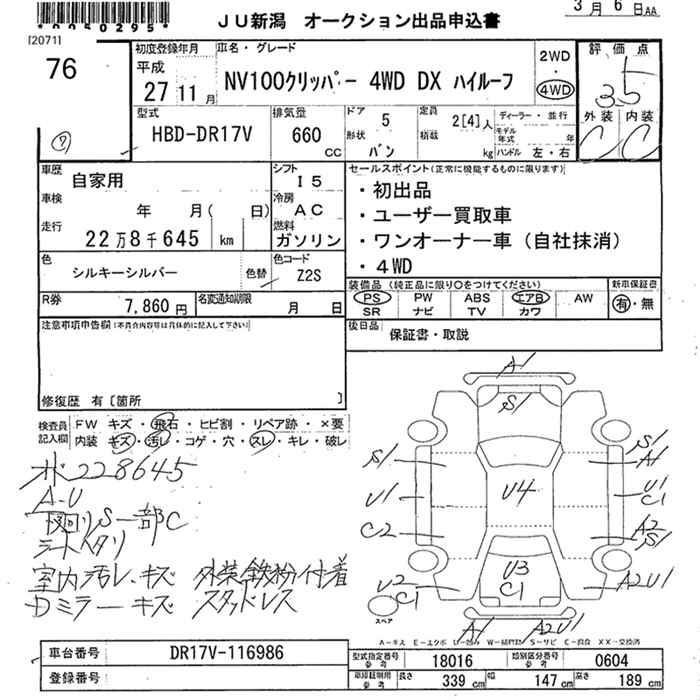 0050295
[2071]
JU新潟 オークション出品申込書
3月 6日AA
76
初度登録年月
平成
27 11月
車名・グレード
NV100クリッパー 4WD DX ハイルーフ
2WD
4WD
評価点
3.5
外装 内装
C C
型式
HBD-DR17V
排気量
660
CC
ドア
5
形状
バン
定員
2[4]人
積載
kg
ディーラー・並行
モデル年式 年
ハンドル 左・右
車歴
自家用
シフト
I5
車検
年 月( 日)
冷房
AC
走行
22万8千645 km
燃料
ガソリン
セールスポイント(正常に機能するものに限ります)
・初出品
・ユーザー買取車
・ワンオーナー車(自社抹消)
・4WD
色
シルキーシルバー
色替
色コード
Z2S
装備品(純正品に限り○をつけてください)
PS PW ABS エアB AW
SR ナビ TV カワ
新車保証書
有・無
R券
7,860円
名変通知期限
月 日
後日品
保証書・取説
注意事項申告欄(不具合内容等は具体的に記入して下さい)
修復歴 有〔箇所 〕
検査員記入欄
FW キズ・飛石・ヒビ割・リペア跡・×要
内装・キズ・汚レ・コゲ・穴・スレ・キレ・破レ
228645
A-U
廻りS一部C
シートヘタリ
室内汚レ、キズ 外装鉄粉付着
Dミラーキズ スタッドレス
A1
S1
S1
S1
A1
U1
U4
U1
C1
C2
A2
S1
U3
C1
U2
C1
A2U1
A1
A2U1
スペア
A-キズ E-エクボ U-凹み W-補修跡 S-サビ C-腐食 XX-交換済
車台番号
DR17V-116986
登録番号
型式指定番号
参考
18016
類別区分番号
参考
0604
車検証制用
参考
長さ
339 cm
幅
147 cm
高さ
189 cm